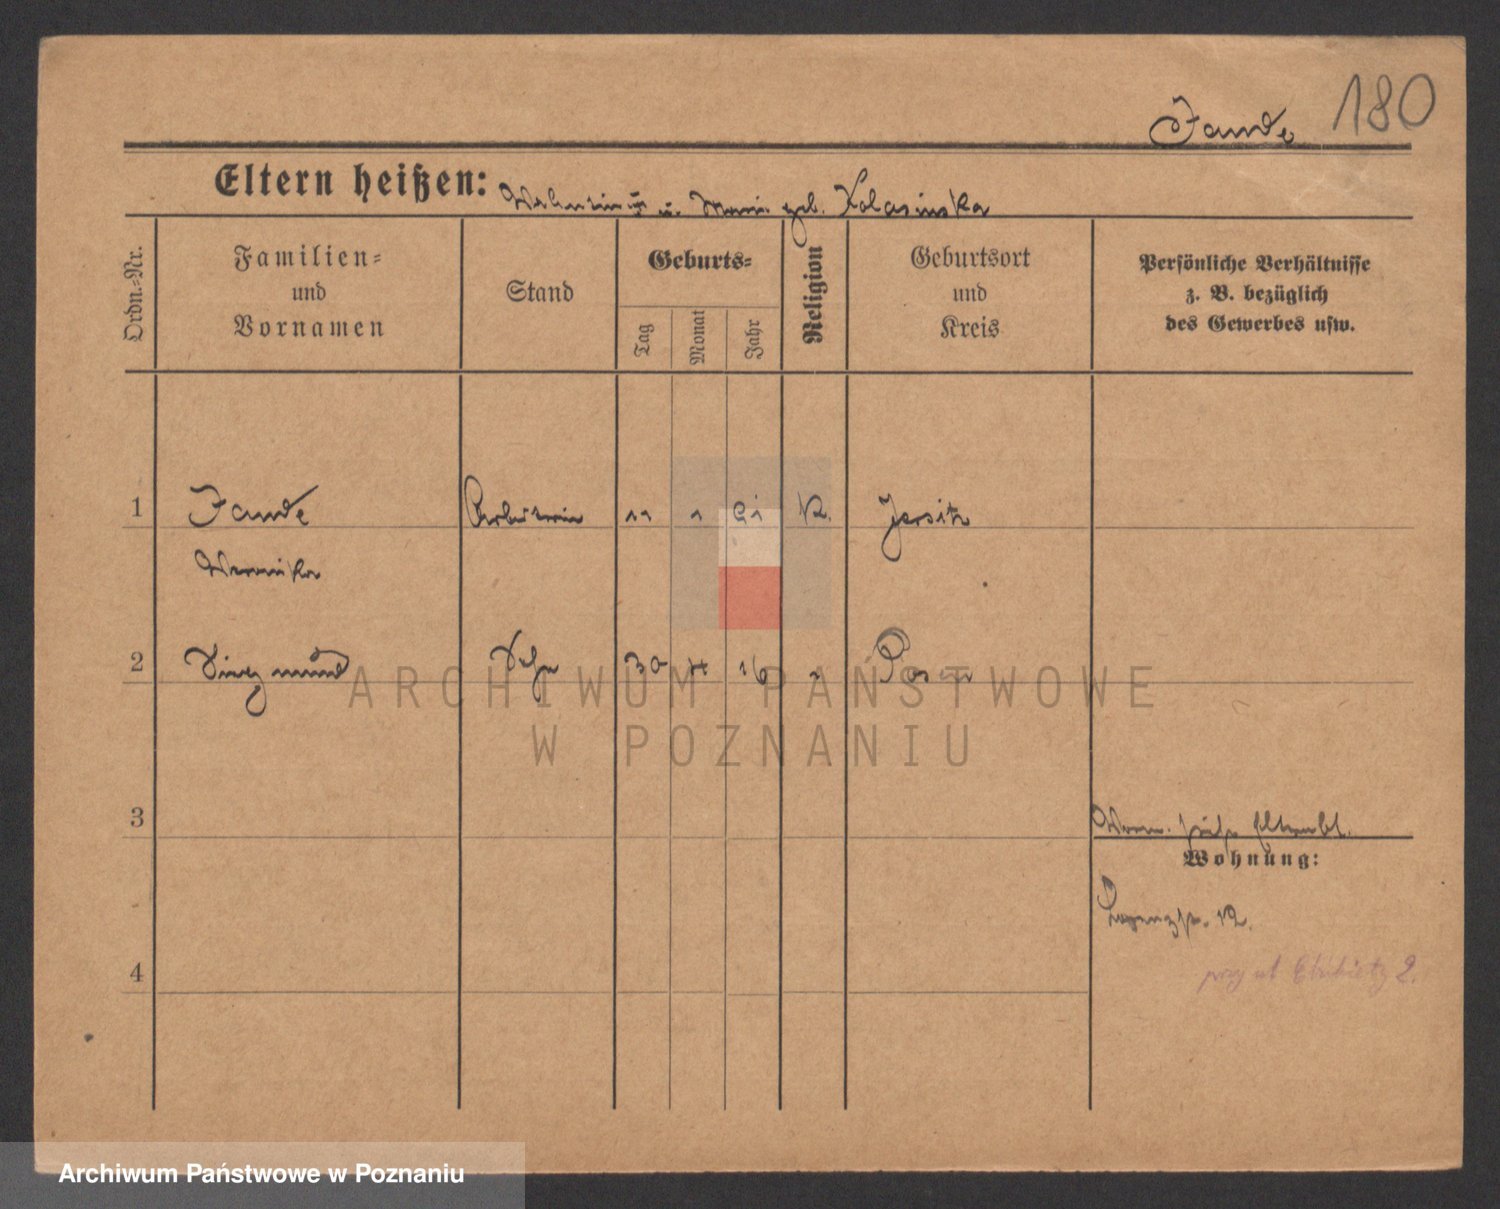 Jande 180
Eltern heißen: u. geb. Kolasinska
Ordn.-Nr.
Familien-
und
Vornamen
Stand
Geburts-
Tag
Monat
Jahr
Religion
Geburtsort
und
Kreis
Persönliche Verhältnisse
z. B. bezüglich
des Gewerbes usw.
1 Jande Arbeiterin 11 1 91 K. Jersitz
Weronika
2 Sohn 30 4 16 " Posen
3
Wohnung:
12.
przy ul Elżbiety 2.
4
ARCHIWUM PAŃSTWOWE
W POZNANIU
Archiwum Państwowe w Poznaniu